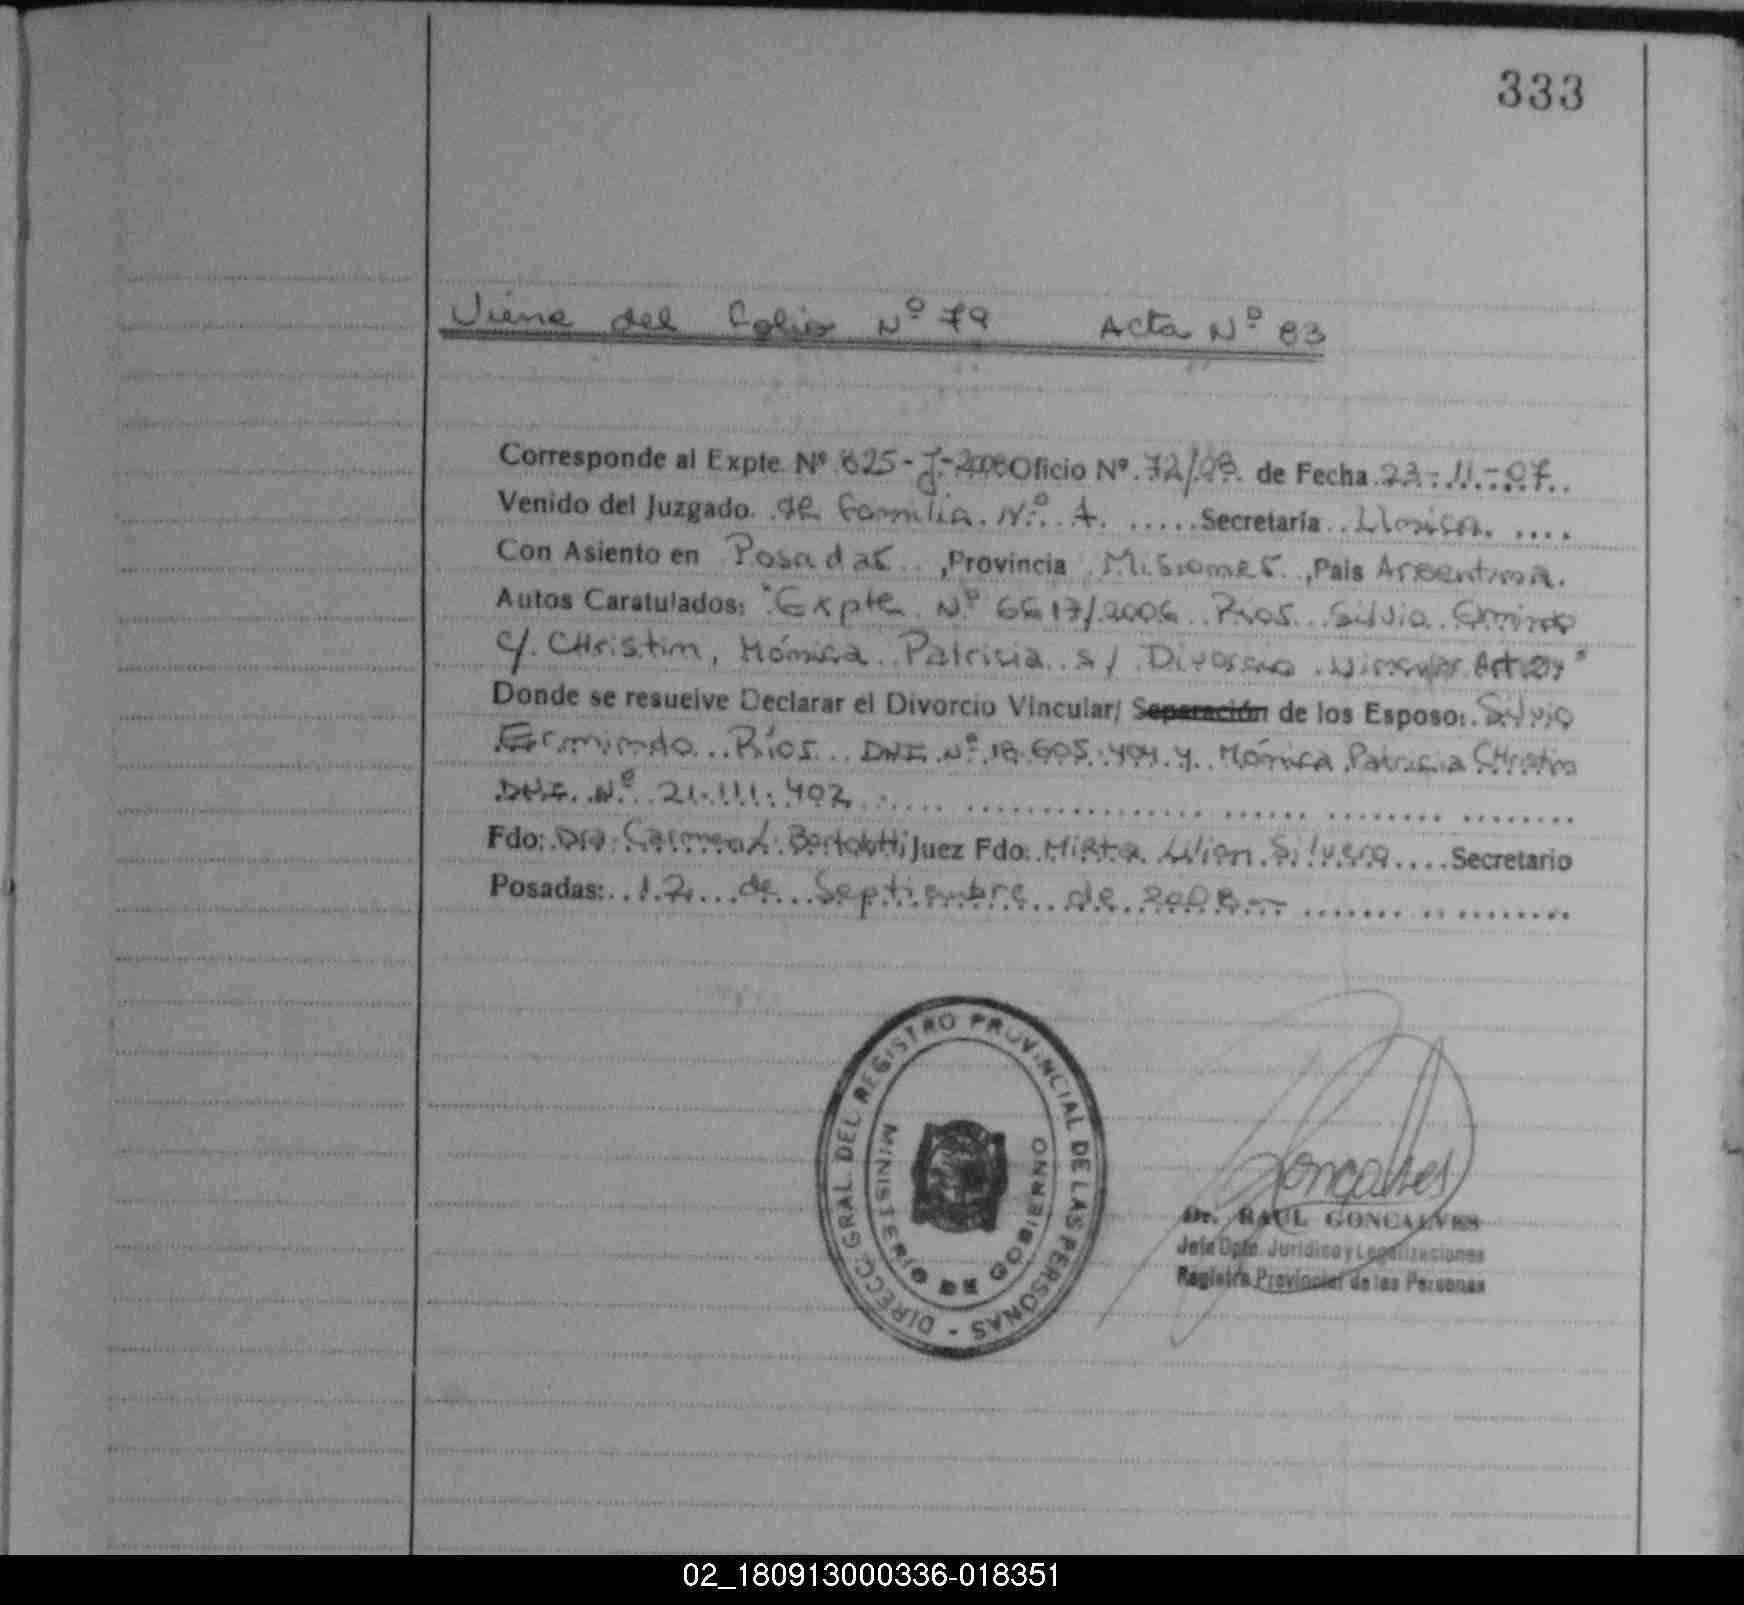 333
Viene del Folio Nº 79 Acta Nº 83
Corresponde al Expte. Nº 825-J-2008 Oficio Nº 72/08 de Fecha 23-11-07
Venido del Juzgado de Familia Nº 1 Secretaría Única
Con Asiento en Posadas, Provincia Misiones, País Argentina.
Autos Caratulados: "Expte Nº 6617/2006 Ríos Silvio Ermindo
c/ CHristin, Mónica Patricia s/ Divorcio Vincular Art. 214"
Donde se resuelve Declarar el Divorcio Vincular/ Separación de los Esposo: Silvio
Ermindo Ríos DNI Nº 18.605.404 y Mónica Patricia CHristin
DNI Nº 21.111.402
Fdo: Dra Carmen L. Bertolotti Juez Fdo: Mirta Lilian Silvera Secretario
Posadas: 12 de Septiembre de 2008-
DIRECC. GRAL. DEL REGISTRO PROVINCIAL DE LAS PERSONAS -
MINISTERIO DE GOBIERNO
Goncalves
Dr. RAUL GONCALVES
Jefe Dpto. Jurídico y Legalizaciones
Registro Provincial de las Personas
02_180913000336-018351